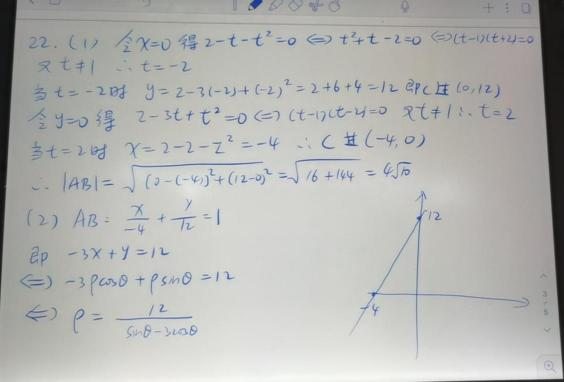 22. (1) 令x=0 得 2-t-t²=0 ⇔ t²+t-2=0 ⇔ (t-1)(t+2)=0
又 t≠1 ∴ t=-2
当t=-2时 y=2-3(-2)+(-2)²=2+6+4=12 即C过(0,12)
令y=0得 2-3t+t²=0 ⇔ (t-1)(t-2)=0 又t≠1 ∴ t=2
当t=2时 x=2-2-2²=-4 ∴ C过(-4,0)
∴ |AB|=√(0-(-4))²+(12-0)²=√16+144=4√10
(2) AB: x/-4+y/12=1
即 -3x+y=12
⇔ -3ρcosθ+ρsinθ=12
⇔ ρ=12/sinθ-3cosθ
12
-4